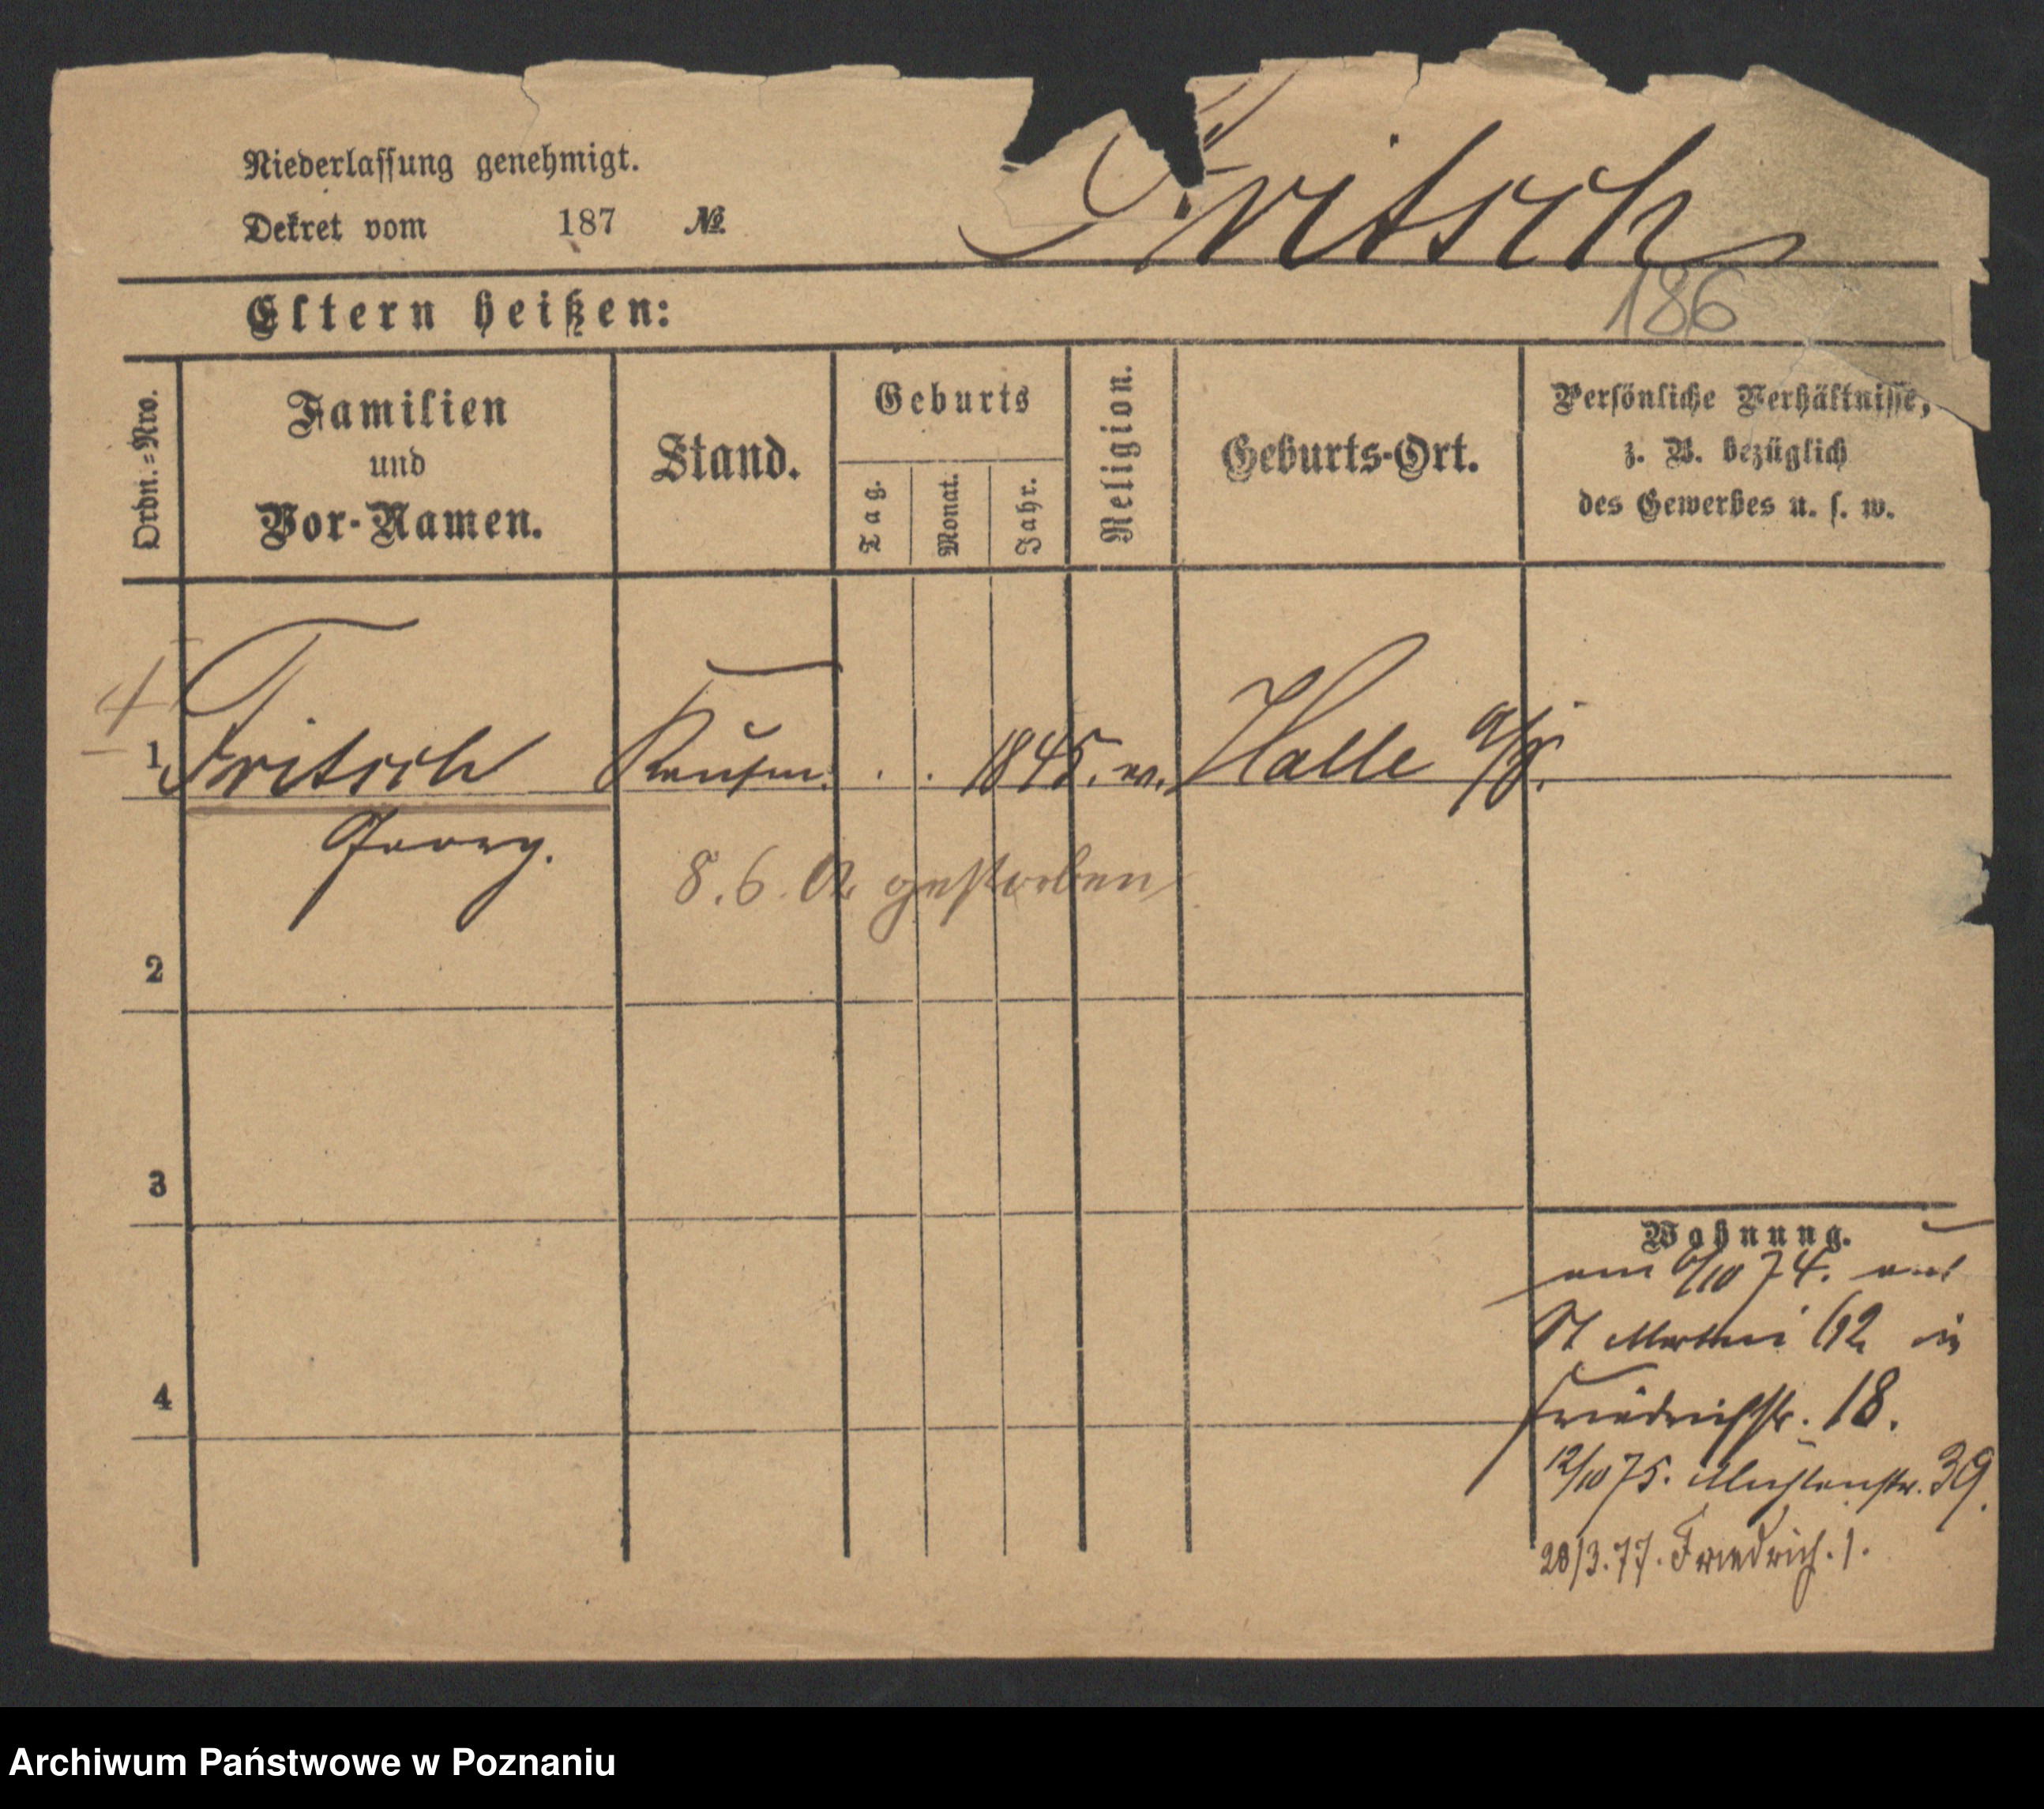 Niederlassung genehmigt.
Dekret vom 187 №
Fritsch
186
Eltern heißen:
Ordn.-Nro.
Familien
und
Vor-Namen.
Stand.
Geburts
Tag.
Monat.
Jahr.
Religion.
Geburts-Ort.
Persönliche Verhältnisse,
z. B. bezüglich
des Gewerbes u. s. w.
1 Fritsch Kaufm. . . 1845. ev. Halle a/S.
Georg.
8.6.02 gestorben
2
3
4
Wohnung.
am 6/10 74. aus
St Martin 62 in
Friedrichstr. 18.
12/10 75. Muhlenstr. 39.
28/3.77. Friedrich. 1.
Archiwum Państwowe w Poznaniu